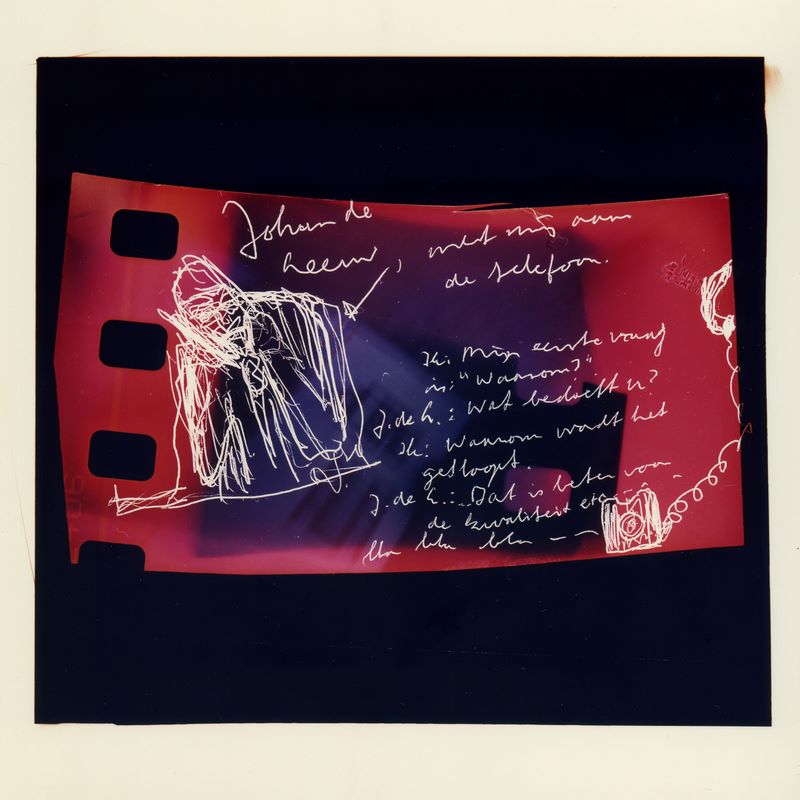 Johan de
Leeuw, met mij aan
de telefoon.
Ik: Mijn eerste vraag
is: "Waarom?"
J. de L.: Wat bedoelt u?
Ik: Waarom wordt het
gesloopt.
J. de L.: Dat is beter voor
de kwaliteit etc
bla bla bla — —